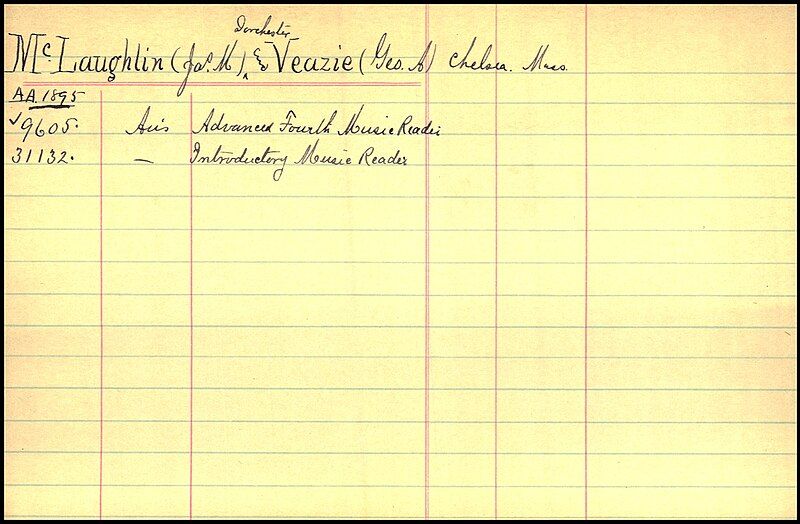 Dorchester
McLaughlin (Jas. M) ‸ & Veazie (Geo. A) Chelsea. Mass.
AA. 1895
✓9605. Aus Advanced Fourth Music Reader
31132. — Introductory Music Reader